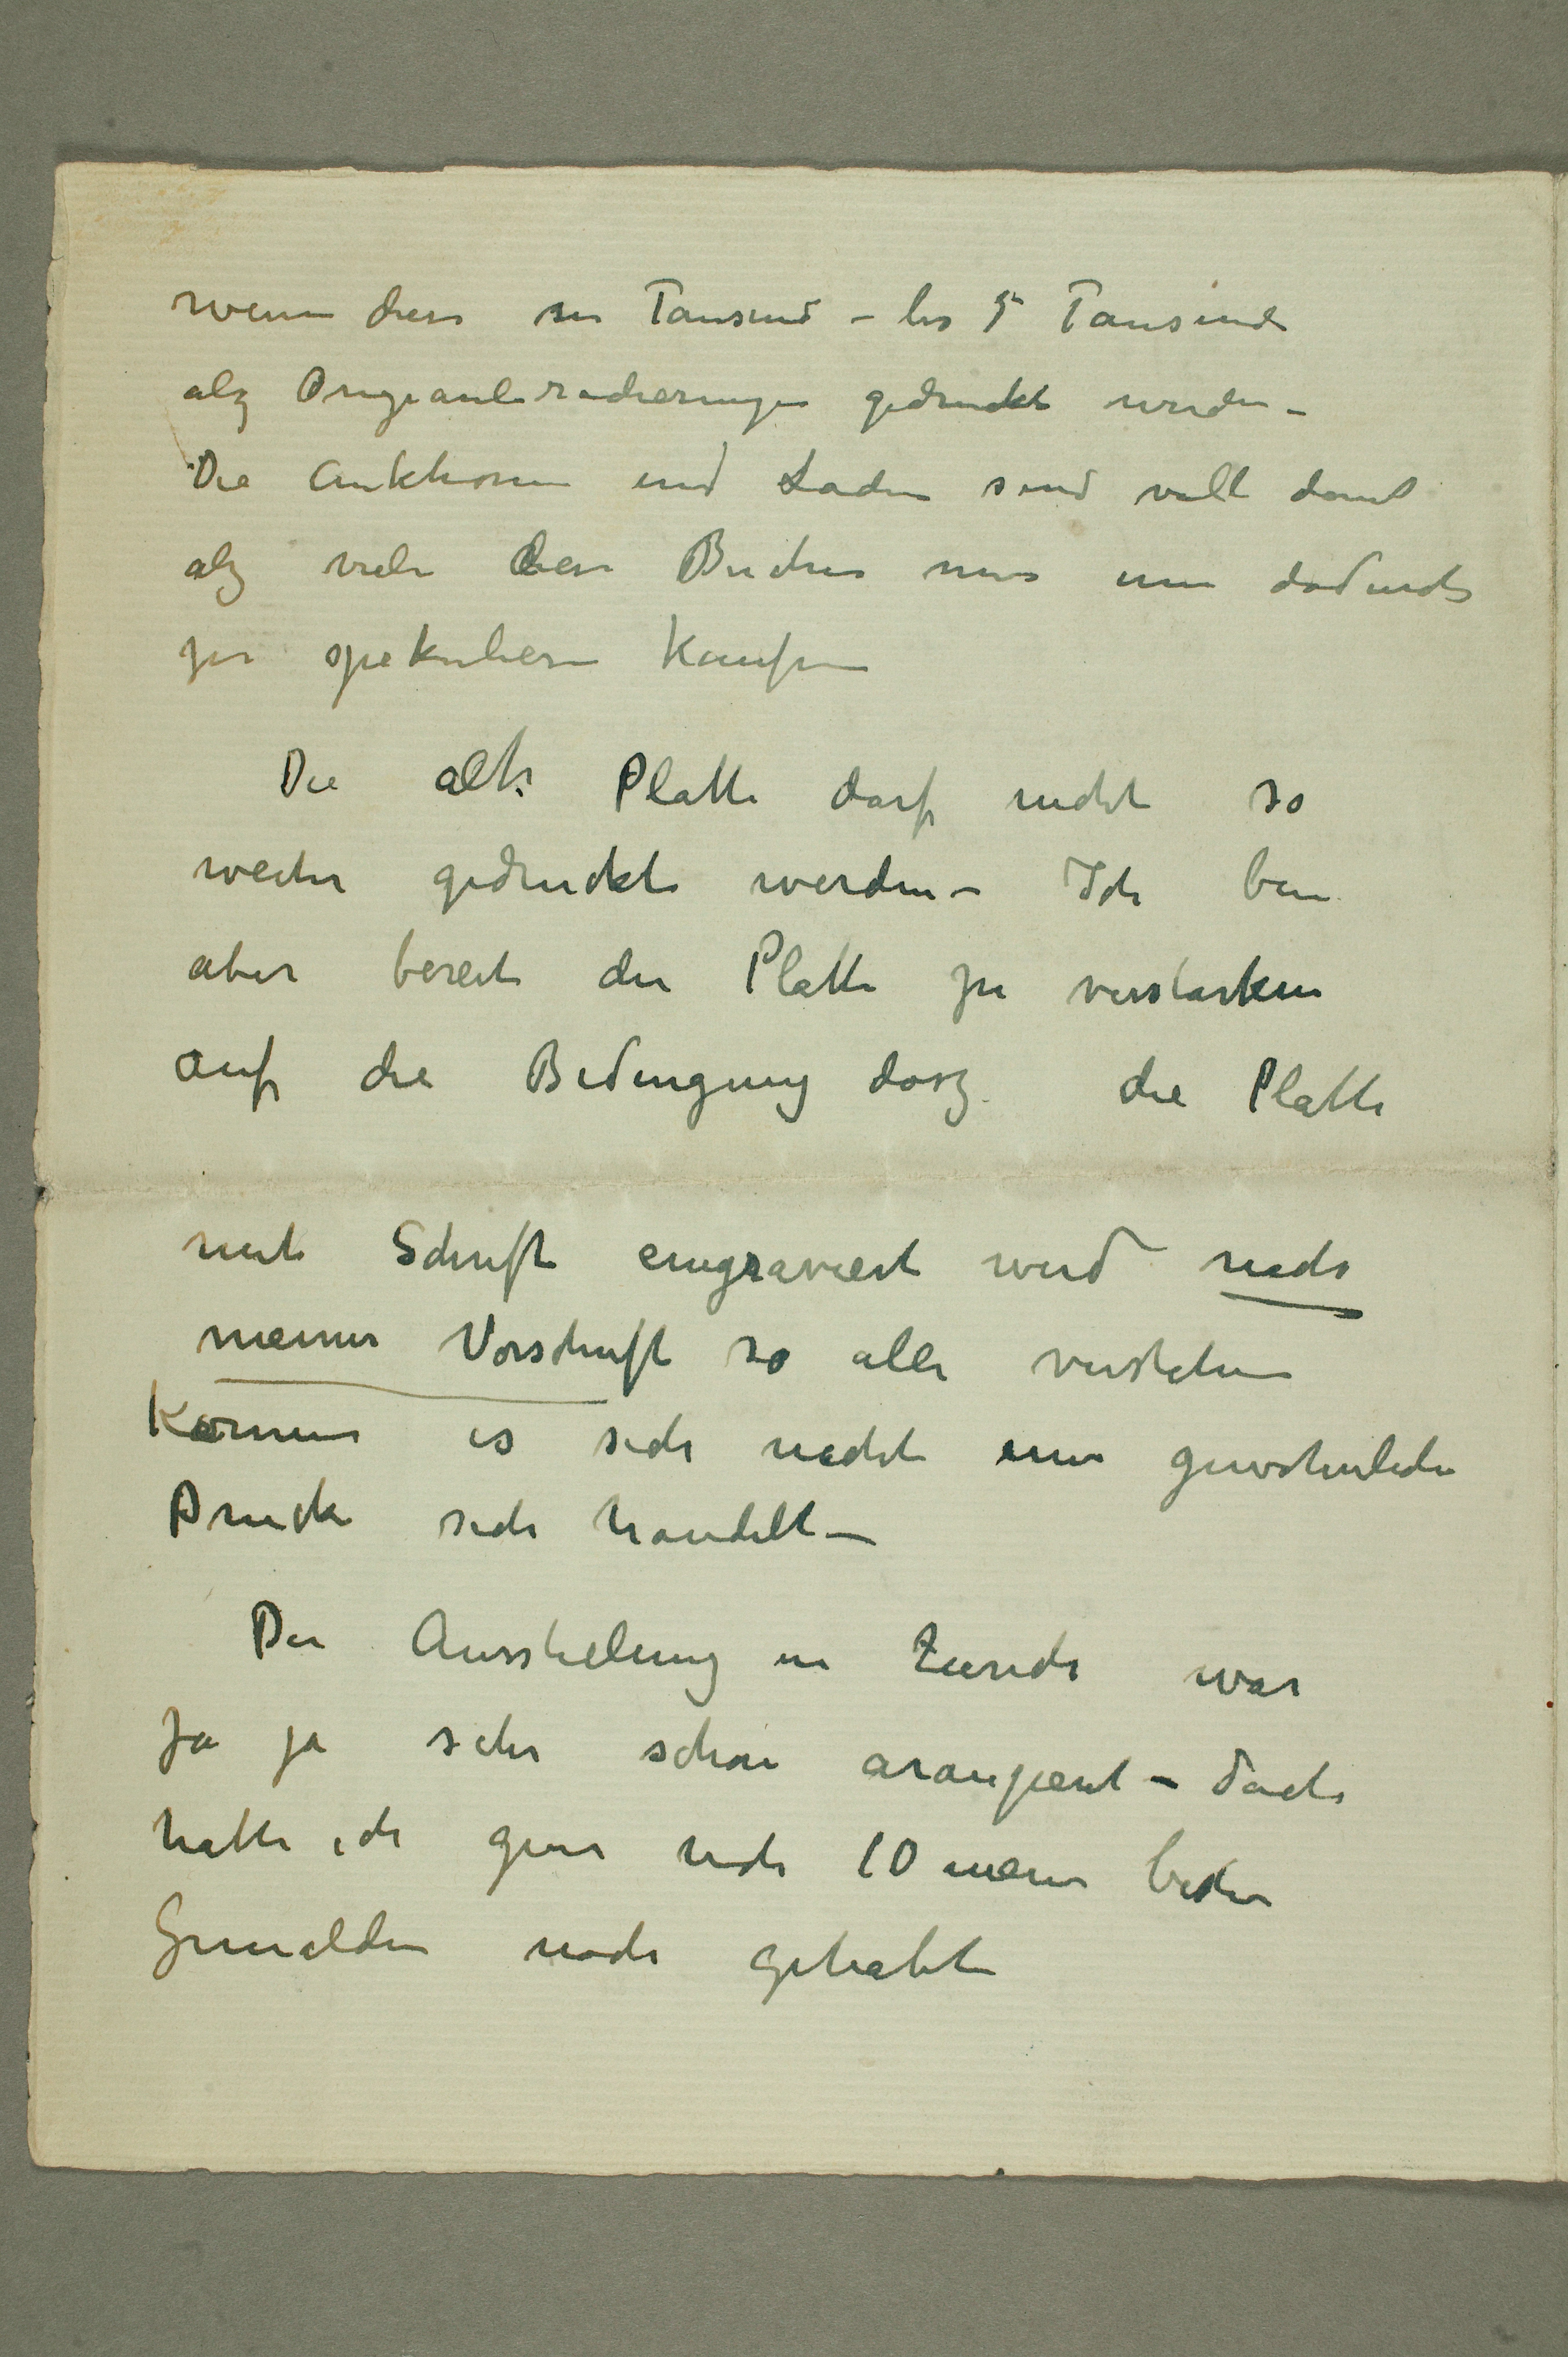 wenn diese in Tausend – bis 5 Tausende
alz Orugianlradierungen gedruckt werden –
Die Auktionen und Laden sind voll damit
alz viele diese Bücher nur um dadurch
zu spekulieren kaufen
Die alte Platte darf nicht so
weiter gedruckt werden – Ich bin
aber bereit die Platte zu verstarken
auf die Bedingung dasz die Platte
mit Schrift eingraviert wird nach
meiner Vorschrift so alle verstehen
können es sich nicht um gewohnliche
Drucke sich handelt –
Die Ausstelung in Zürich war
ja ja sehr schön arangiert – doch
hatte ich gern noch 10 meine besten
Gemälden noch gehabt